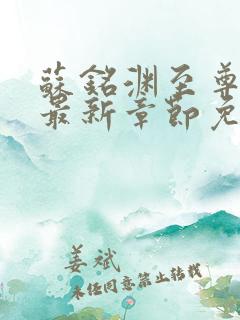 蘇銘渊至尊
最新章節免
姜斌
未经同意禁止转载